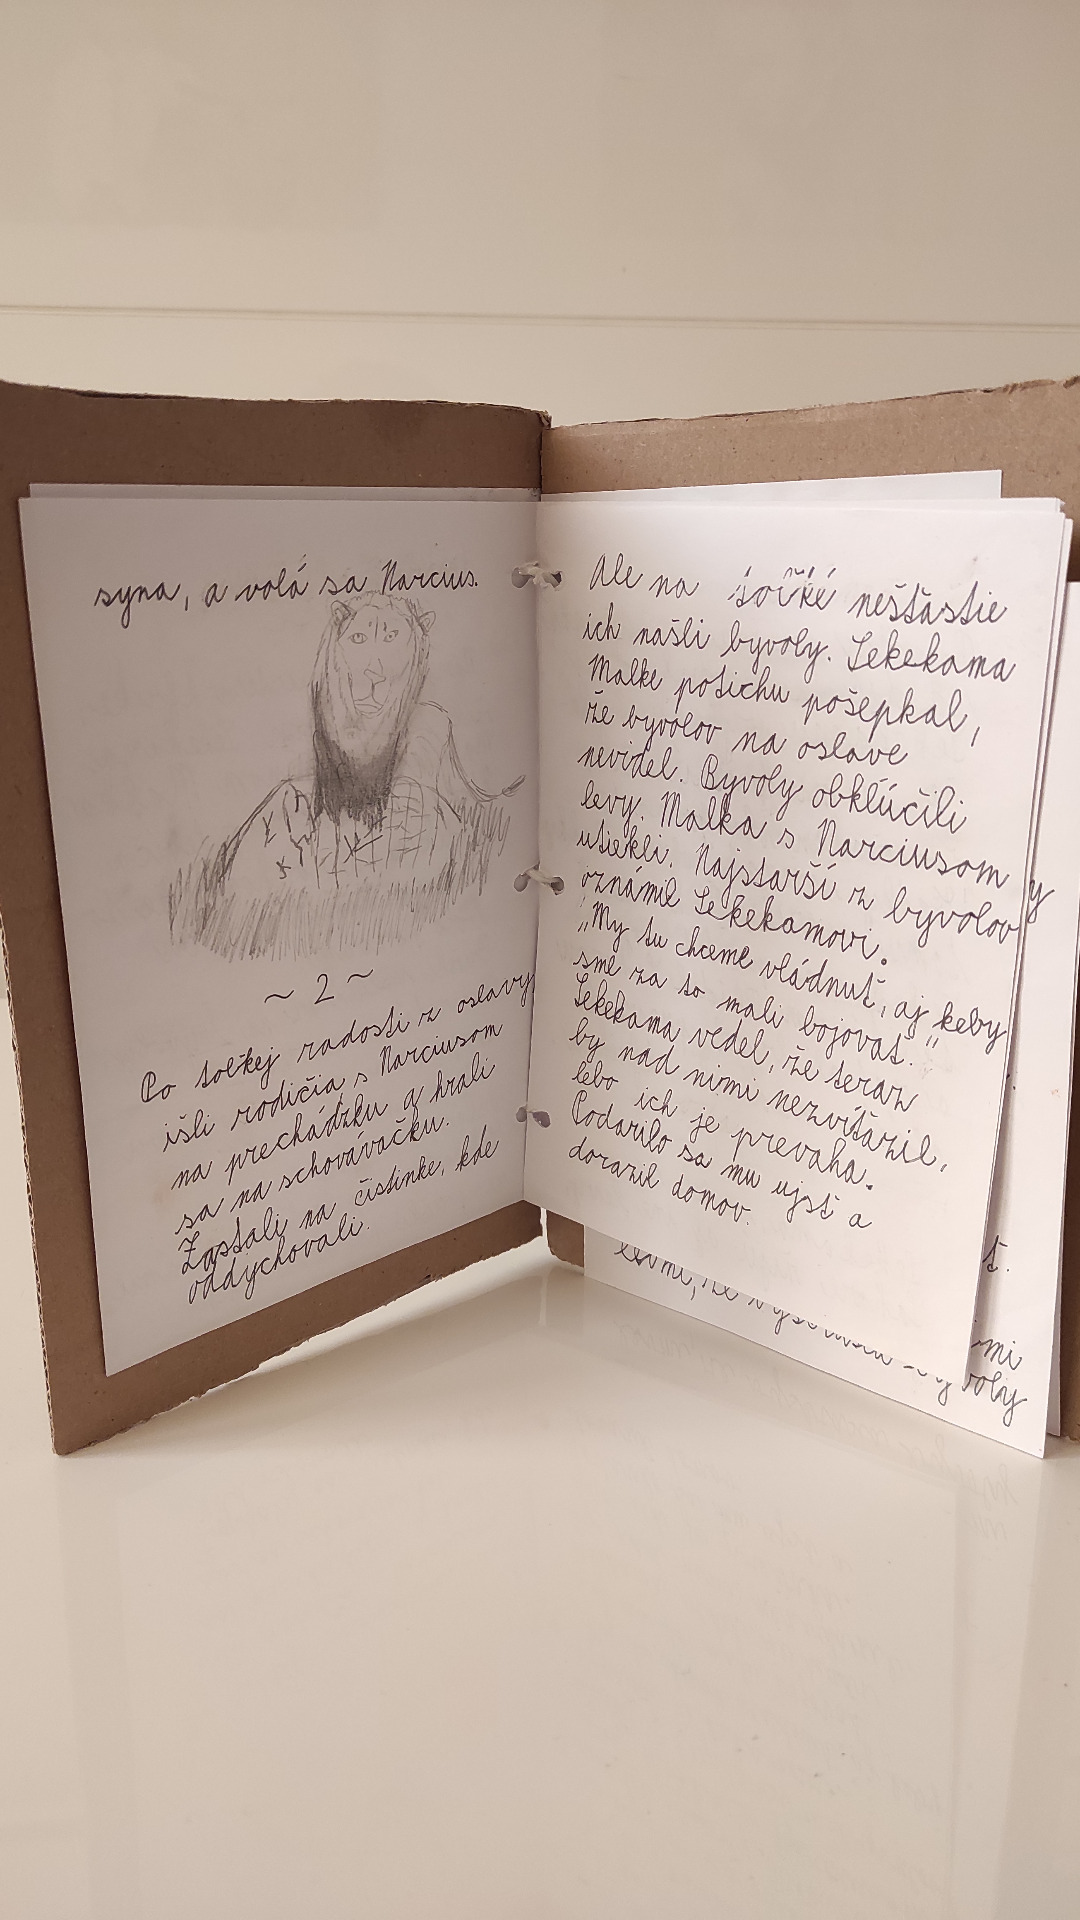 syna, a volá sa Narcius.
~ 2 ~
Po toľkej radosti z oslavy
išli rodičia s Narciusom
na prechádzku a hrali
sa na schovávačku.
Zastali na čistinke, kde
oddychovali.
Ale na nešťastie
ich našli byvoly. Lekekama
Malke potichu pošepkal,
že byvolov na oslave
nevidel. Byvoly obkľúčili
levy. Malka s Narciusom
utiekli. Najstarší z byvolov
oznámil Lekekamovi.
„My tu chceme vládnuť, aj keby
sme za to mali bojovať."
Lekekama vedel, že teraz
by nad nimi nezvíťazil,
lebo ich je prevaha.
Podarilo sa mu ujsť a
dorazil domov.